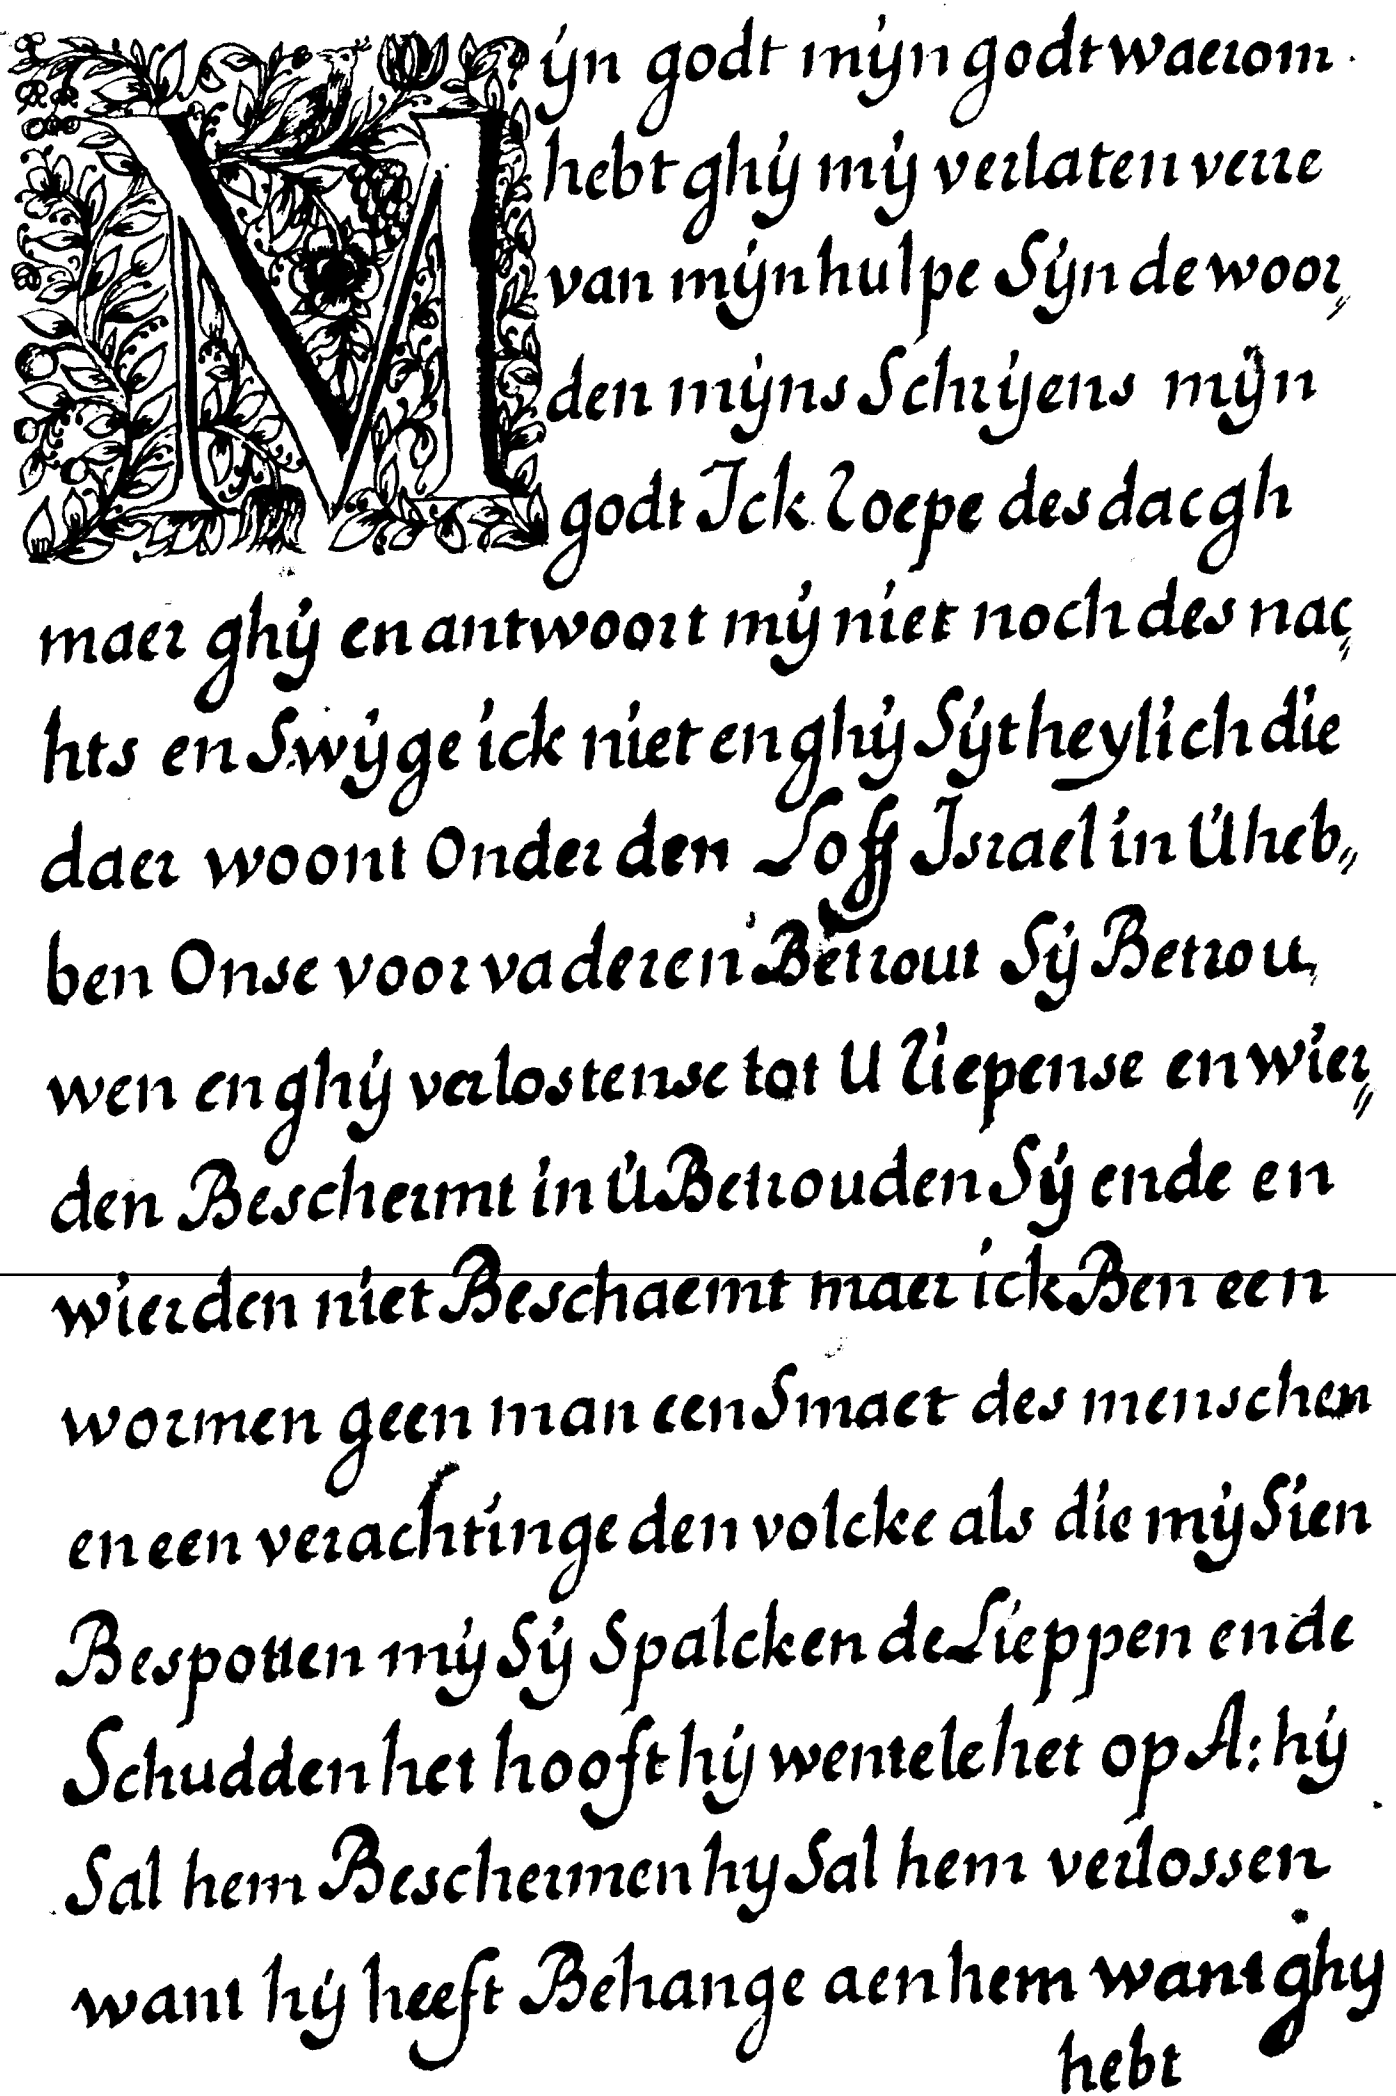 Mijn godt mijn godt waerom
hebt ghij mij verlaten verre
van mijn hulpe Sijn de woor„
den mijns Schrijens mijn
godt Ick roepe des daegh
maer ghij en antwoort mij niet noch des nac„
hts en Swijge ick niet en ghij Sijt heylich die
daer woont Onder den Loff Israel in U heb„
ben Onse voorvaderen Betrout Sij Betrou„
wen en ghij verlostense tot U riepense en wier„
den Beschermt in U Betrouden Sij ende en
wierden niet Beschaemt maer ick Ben een
wormen geen man een Smaet des menschen
en een verachtinge den volcke als die mij Sien
Bespotten mij Sij Spalcken de Lieppen ende
Schudden het hooft hij wentele het op A: hij
Sal hem Beschermen hy Sal hem verlossen
want hij heeft Behange aen hem want ghy
hebt